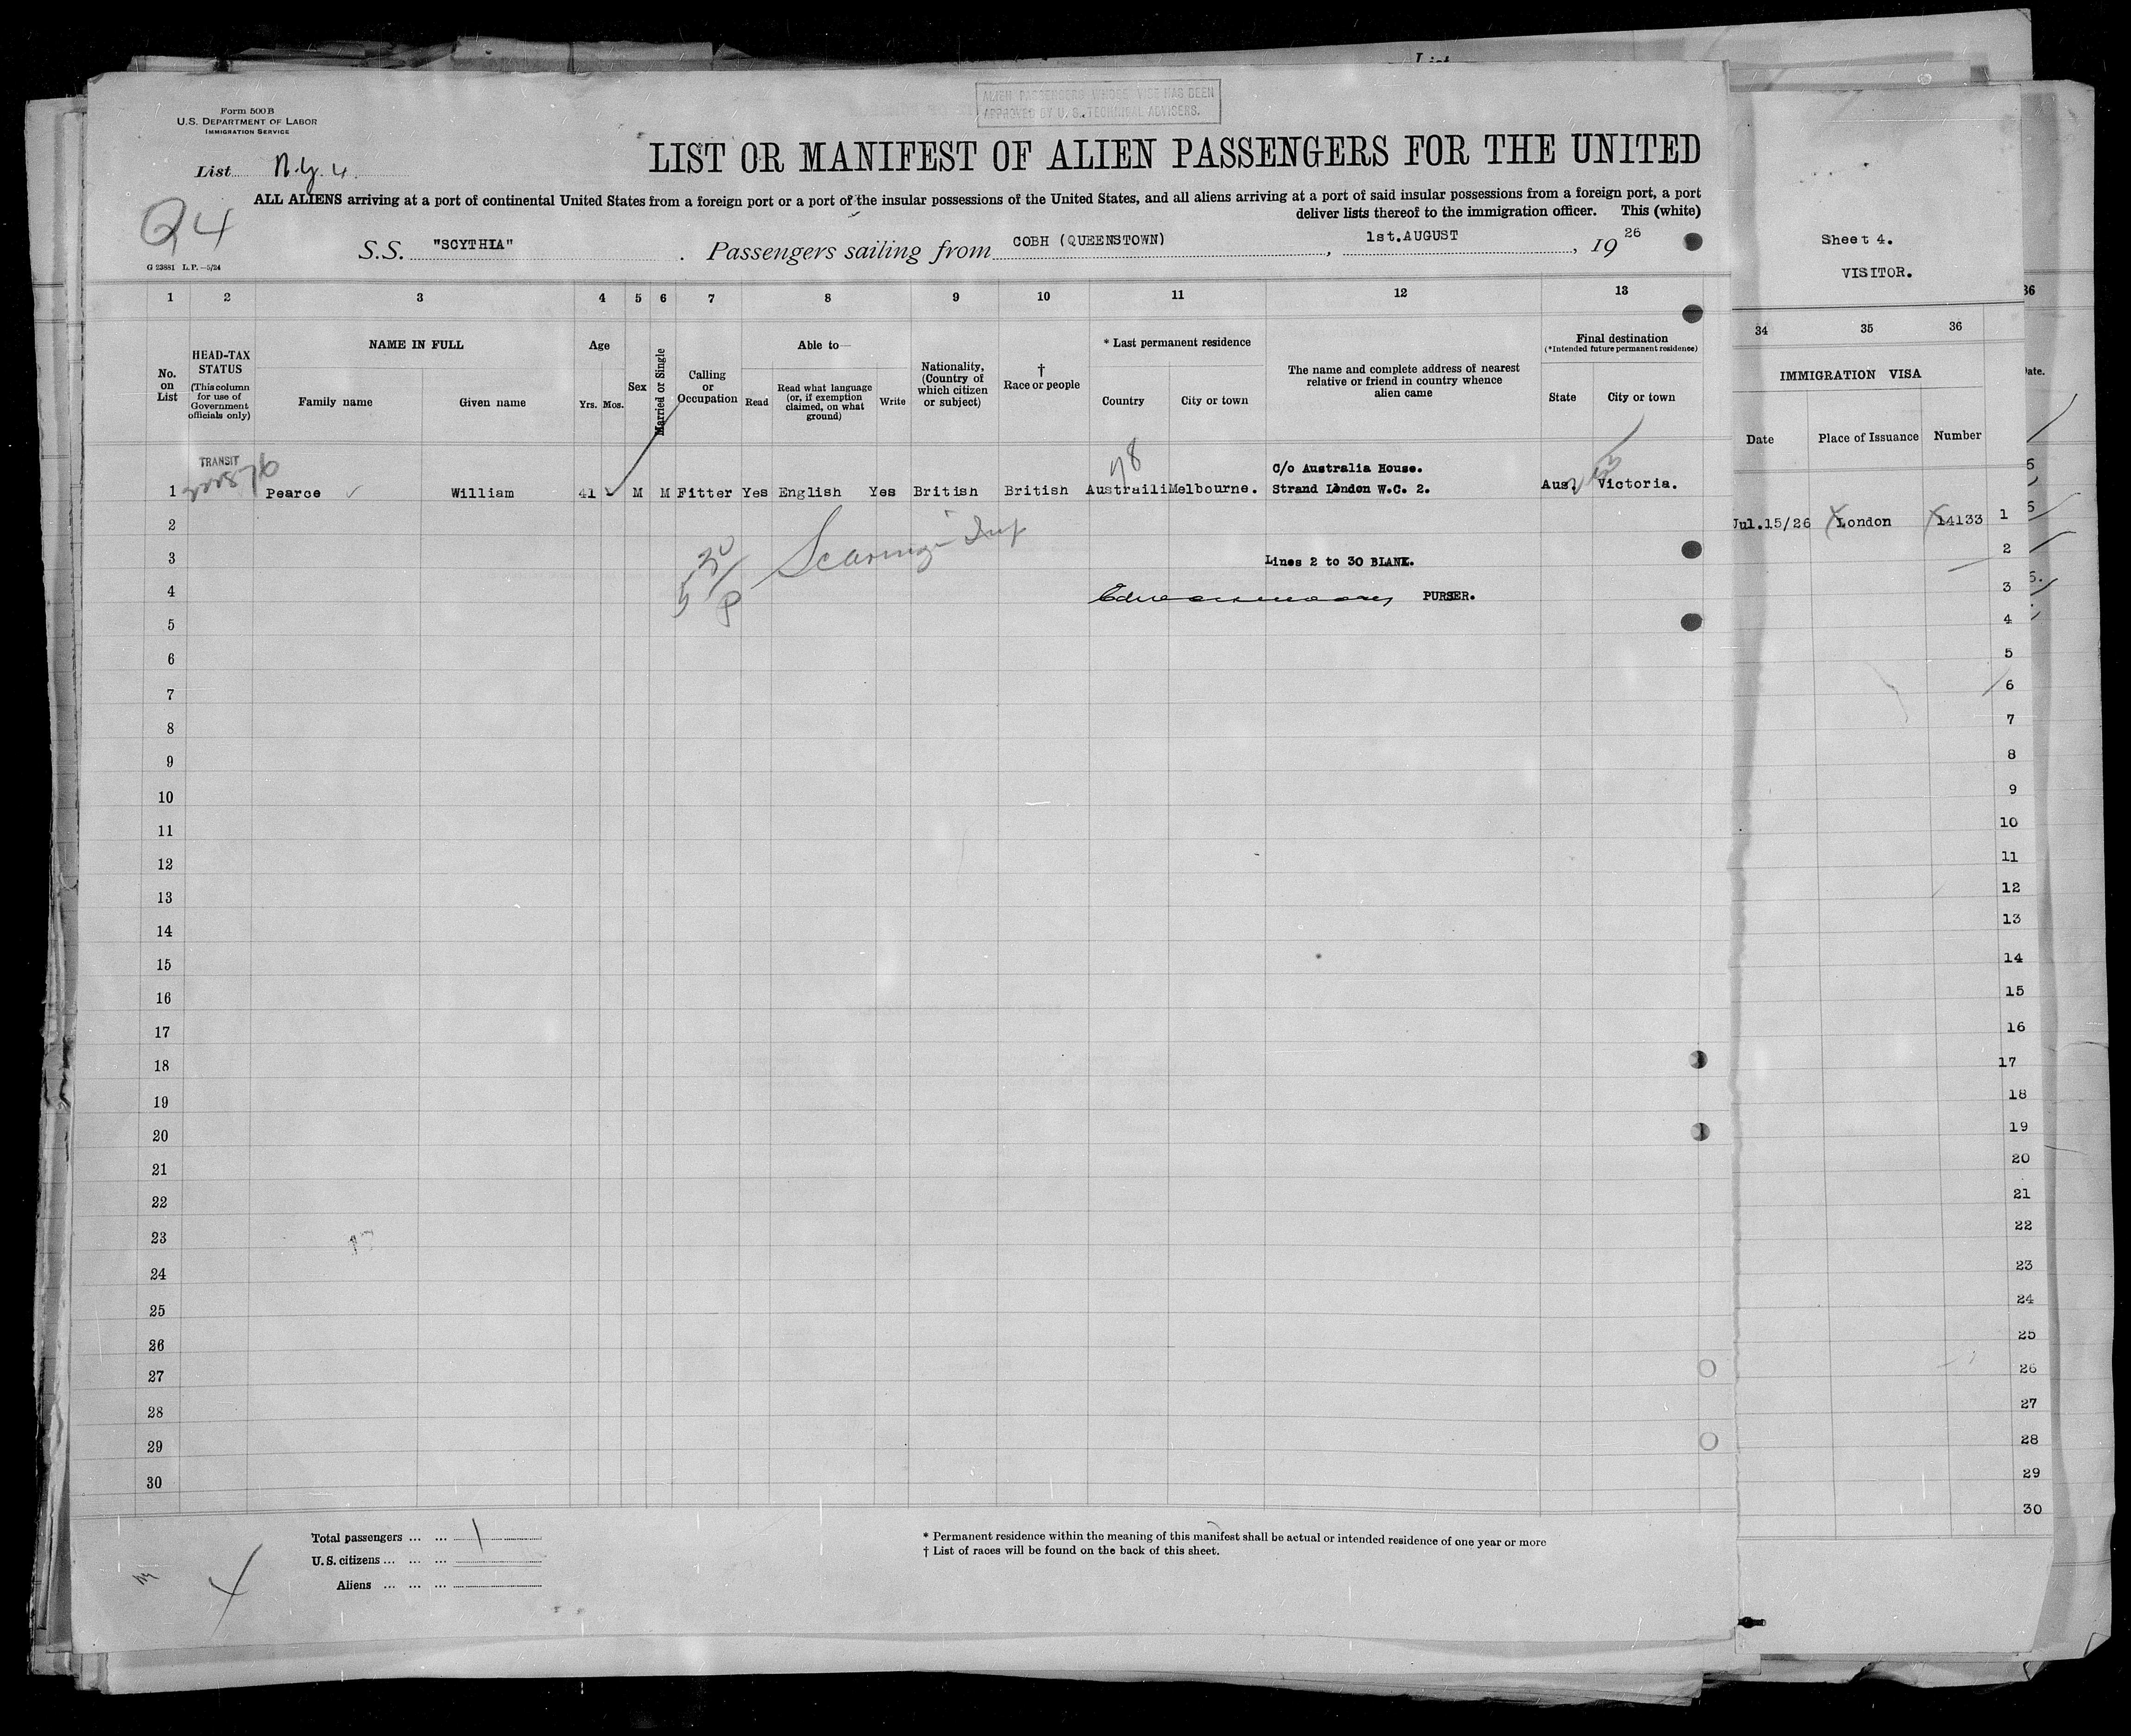 List
ALIEN PASSENGERS WHOSE VISE HAS BEEN
APPROVED BY U. S. TECHNICAL ADVISERS.
Form 500 B
U.S. DEPARTMENT OF LABOR
IMMIGRATION SERVICE
List N.Y. 4.
LIST OR MANIFEST OF ALIEN PASSENGERS FOR THE UNITED
ALL ALIENS arriving at a port of continental United States from a foreign port or a port of the insular possessions of the United States, and all aliens arriving at a port of said insular possessions from a foreign port, a port
deliver lists thereof to the immigration officer. This (white)
24
S.S. "SCYTHIA" . Passengers sailing from COBH (QUEENSTOWN) , 1st.AUGUST , 19 26
G 23881 L.P.—5/24
Sheet 4.
VISITOR.
1 2 3 4 5 6 7 8 9 10 11 12 13
No. on List
HEAD-TAX STATUS
(This column for use of Government officials only)
NAME IN FULL
Family name
Given name
Age
Yrs. Mos.
Sex
Married or Single
Calling or Occupation
Able to—
Read
Read what language (or, if exemption claimed, on what ground)
Write
Nationality, (Country of which citizen or subject)
†
Race or people
* Last permanent residence
Country
City or town
The name and complete address of nearest relative or friend in country whence alien came
Final destination
(*Intended future permanent residence)
State
City or town
34 35 36
36
IMMIGRATION VISA
Date.
Date
Place of Issuance
Number
TRANSIT
78
C/o Australia House.
1 Pearce William 41 M M Fitter Yes English Yes British British Austraili Melbourne. Strand London W.C. 2. Aus. Victoria.
Jul.15/26 London 14133 1
2
3 Lines 2 to 30 BLANK.
5 30/P
4 PURSER.
5
6
7
8
9
10
11
12
13
14
15
16
17
18
19
20
21
22
23
24
25
26
27
28
29
30
2
3
4
5
6
7
8
9
10
11
12
13
14
15
16
17
18
19
20
21
22
23
24
25
26
27
28
29
30
Total passengers ... ... 1
U.S. citizens ... ... ...
Aliens ... ... ...
* Permanent residence within the meaning of this manifest shall be actual or intended residence of one year or more
† List of races will be found on the back of this sheet.